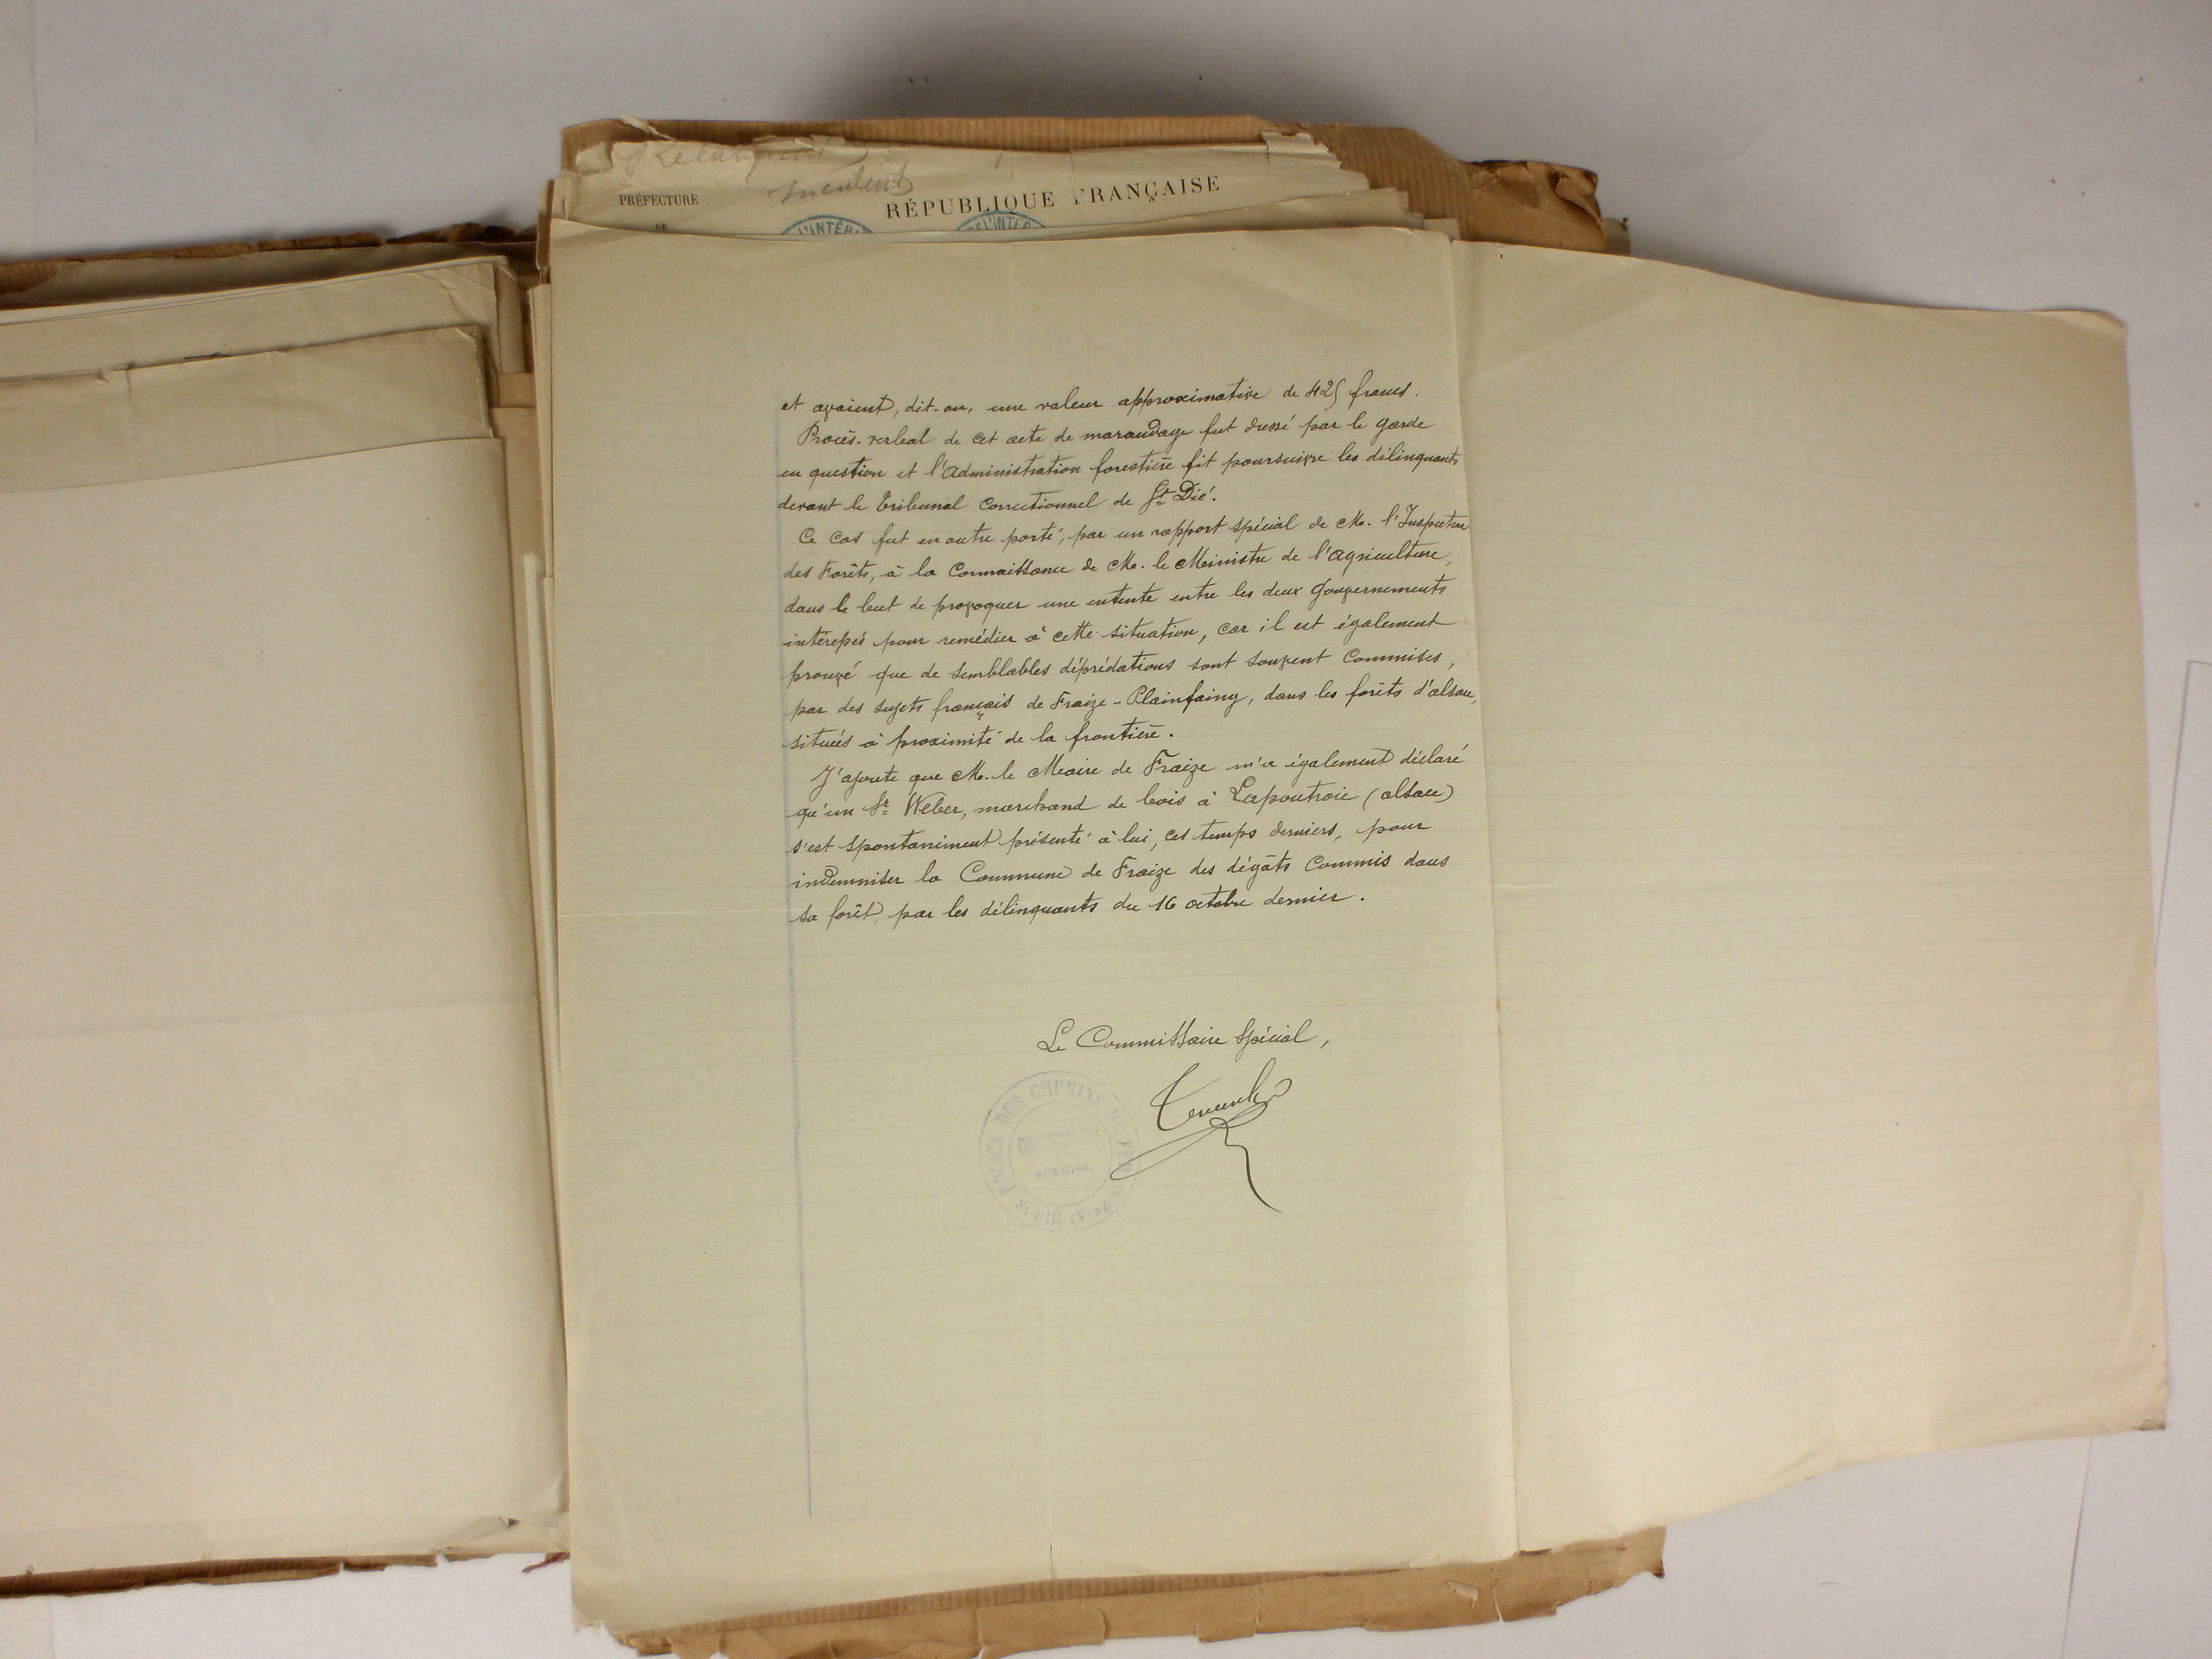 PRÉFECTURE
DE
RÉPUBLIQUE FRANÇAISE
L'INTÉR
DE L'INTÉR
et avaient, dit-on, une valeur approximative de 425 francs.
Procès-verbal de cet acte de maraudage fut dressé par le garde
en question et l'Administration forestière fit poursuivre les délinquants
devant le Tribunal Correctionnel de St Dié.
Ce cas fut en outre porté, par un rapport spécial de M. l'Inspecteur
des Forêts, à la Connaissance de M. le Ministre de l'Agriculture,
dans le but de provoquer une entente entre les deux Gouvernements
intéressés pour remédier à cette situation, car il est également
prouvé que de semblables déprédations sont souvent Commises,
par des sujets français de Fraize-Plainfaing, dans les forêts d'alsace,
situées à proximité de la frontière.
J'ajoute que M. le Maire de Fraize m'a également déclaré
qu'un Sr Weber, marchand de bois à Lapoutroie (alsace)
s'est spontanément présenté à lui, ces temps derniers, pour
indemniser la Commune de Fraize des dégâts Commis dans
sa forêt par les délinquants du 16 octobre dernier.
Le Commissaire Spécial,
POLICE DES CHEMINS DE FER
SPÉCIAL
St-DIÉ (Vosges)